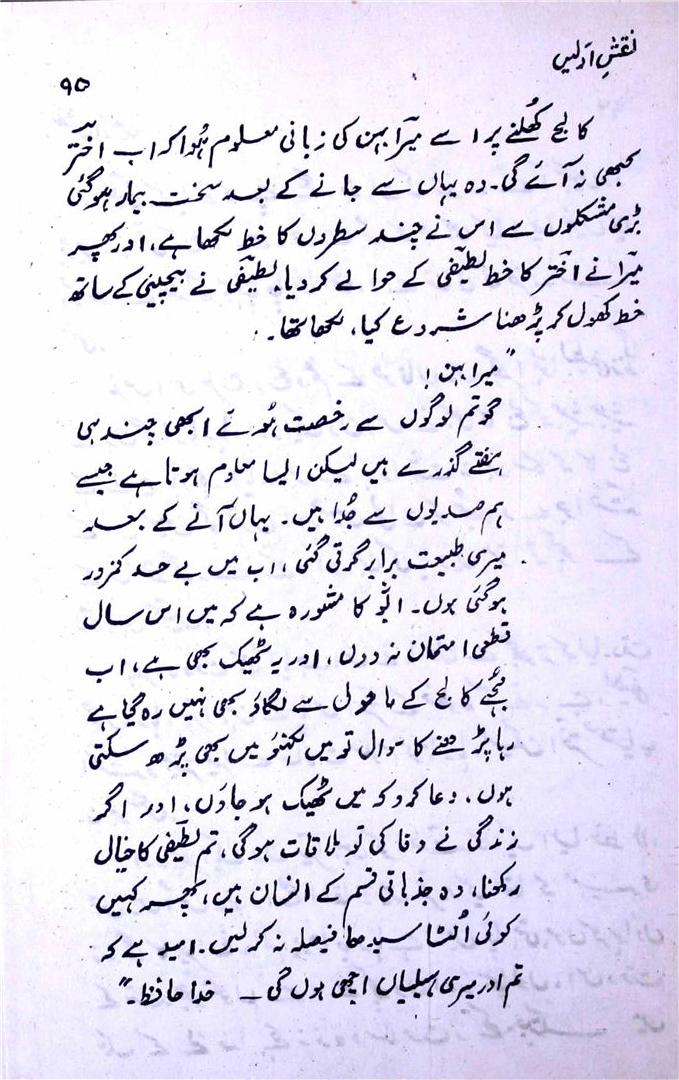 نقشِ اولیں
۹۵
کالج کھُلنے پر اسے میراؔ بہن کی زبانی معلوم ہُوا کہ اب اخترؔ
کبھی نہ آئے گی۔ وہ یہاں سے جانے کے بعد سخت بیمار ہوگئی
بڑی مشکلوں سے اس نے چند سطروں کا خط لکھا ہے، اور پھر
میرؔا نے اخترؔ کا خط لطیفیؔ کے حوالے کر دیا، لطیفیؔ نے بیچینی کے ساتھ
خط کھول کر پڑھنا شروع کیا، لکھا تھا۔
"میرا بہن!
گو تم لوگوں سے رخصت ہُوئے ابھی چند ہی
ہفتے گذرے ہیں لیکن ایسا معلوم ہوتا ہے جیسے
ہم صدیوں سے جُدا ہیں۔ یہاں آنے کے بعد
میری طبیعت برابر گرتی گئی، اب میں بے حد کمزور
ہوگئی ہوں۔ ابّو کا مشورہ ہے کہ میں اس سال
قطعی امتحان نہ دوں، اور یہ ٹھیک بھی ہے، اب
مجُھے کالج کے ماحول سے لگاؤ بھی نہیں رہ گیا ہے
رہا پڑھنے کا سوال تو میں لکھنؤ میں بھی پڑھ سکتی
ہوں۔ دعا کرو کہ میں ٹھیک ہو جاؤں، اور اگر
زندگی نے وفا کی تو ملاقات ہوگی، تم لطیفیؔ کا خیال
رکھنا، وہ جذباتی قسم کے انسان ہیں، پھر کہیں
کوئی اُلٹا سیدھا فیصلہ نہ کر لیں۔ امید ہے کہ
تم اور میری سہیلیاں اچھی ہوں گی ــ خدا حافظ۔"